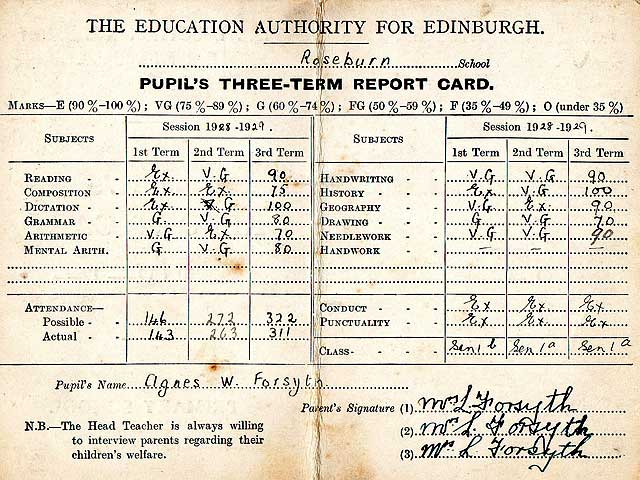 THE EDUCATION AUTHORITY FOR EDINBURGH.
Roseburn School
PUPIL'S THREE-TERM REPORT CARD.
MARKS—E (90 %–100 %) ; VG (75 %–89 %) ; G (60 %–74 %) ; FG (50 %–59 %) ; F (35 %–49 %) ; O (under 35 %)
SUBJECTS Session 1928-1929. SUBJECTS Session 1928-1929.
1st Term 2nd Term 3rd Term 1st Term 2nd Term 3rd Term
READING - - Ex V.G 90 HANDWRITING - V.G V.G 90
COMPOSITION - Ex Ex 75 HISTORY - - Ex V.G 100
DICTATION - - Ex G 100 GEOGRAPHY - V.G Ex 90
GRAMMAR - - G V.G 80 DRAWING - - G V.G 70
ARITHMETIC - - V.G Ex 70 NEEDLEWORK - V.G V.G 90
MENTAL ARITH. G V.G 80 HANDWORK - – – –
ATTENDANCE— CONDUCT - - Ex Ex Ex
Possible - - 146 272 322 PUNCTUALITY - Ex Ex Ex
Actual - - 143 263 311
CLASS- - - Sen 1 b Sen 1 a Sen 1 a
Pupil's Name Agnes W. Forsyth
Parent's Signature (1) Mrs L Forsyth
N.B.—The Head Teacher is always willing (2) Mrs L. Forsyth
to interview parents regarding their (3) Mrs L Forsyth
children's welfare.